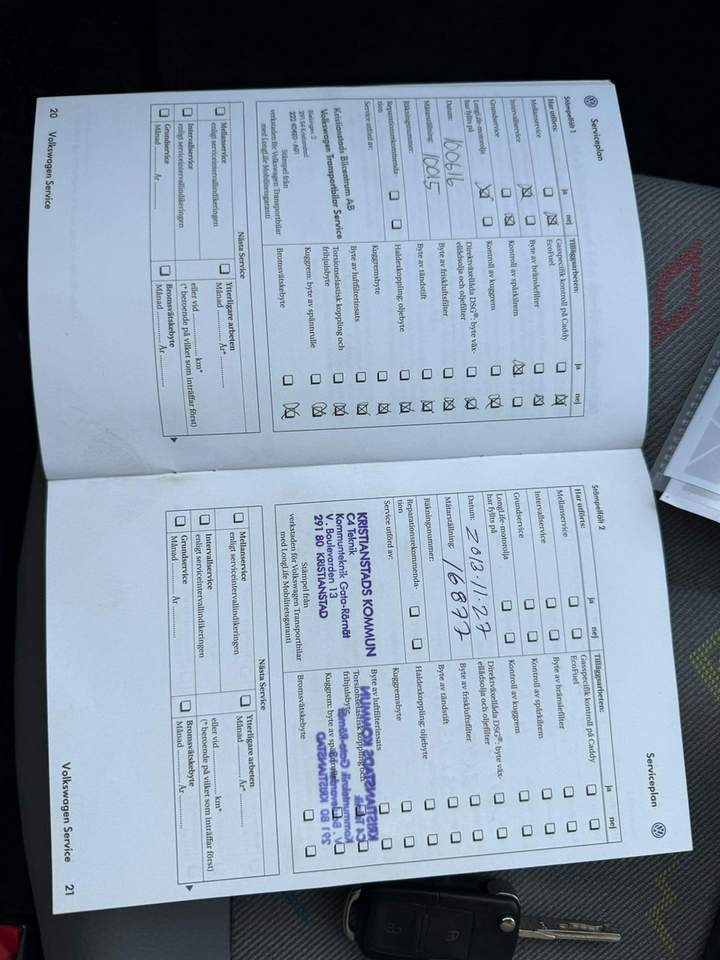 Serviceplan
Stämpelfält 1
Har utförts:
ja
nej
Mellanservice
Intervallservice
Grundservice
LongLife-motorolja
har fyllts på
Datum:
100616
Mätarställning:
10015
Räkningsnummer:
Reparationsrekommenda-
tion
Service utförd av:
Kristianstads Bilcentrum AB
Volkswagen Transportbilar Service
Stämpel från
verkstaden för Volkswagen Transportbilar
med LongLife Mobilitetsgaranti
Tilläggsarbeten:
ja
nej
Gasspecifik kontroll på Caddy
EcoFuel
Byte av bränslefilter
Kontroll av spårkilrem
Kontroll av kuggrem
Direktväxellåda DSG®: byte väx-
ellådsolja och oljefilter
Byte av friskluftsfilter
Byte av tändstift
Haldexkoppling: oljebyte
Kuggremsbyte
Byte av luftfilterinsats
Torsionselastisk koppling och
frihjulsbyte
Kuggrem: byte av spännrulle
Bromsvätskebyte
Nästa Service
Mellanservice
enligt serviceintervallindikeringen
Intervallservice
enligt serviceintervallindikeringen
Grundservice
Månad ........ År ............
Ytterligare arbeten
Månad ............ År* ............
eller vid ............ km*
(* beroende på vilket som inträffar först)
Bromsvätskebyte
Månad ............ År ............
20 Volkswagen Service
Serviceplan
Stämpelfält 2
Har utförts:
ja
nej
Mellanservice
Intervallservice
Grundservice
LongLife-motorolja
har fyllts på
Datum:
2013.11.27
Mätarställning:
16877
Räkningsnummer:
Reparationsrekommenda-
tion
Service utförd av:
KRISTIANSTADS KOMMUN
C4 Teknik
Kommunteknik Gata-Römåt
V. Boulevarden 13
291 80 KRISTIANSTAD
Stämpel från
verkstaden för Volkswagen Transportbilar
med LongLife Mobilitetsgaranti
Tilläggsarbeten:
ja
nej
Gasspecifik kontroll på Caddy
EcoFuel
Byte av bränslefilter
Kontroll av spårkilrem
Kontroll av kuggrem
Direktväxellåda DSG®: byte väx-
ellådsolja och oljefilter
Byte av friskluftsfilter
Byte av tändstift
Haldexkoppling: oljebyte
Kuggremsbyte
Byte av luftfilterinsats
Torsionselastisk koppling och
frihjulsbyte
Kuggrem: byte av spännrulle
Bromsvätskebyte
Nästa Service
Mellanservice
enligt serviceintervallindikeringen
Intervallservice
enligt serviceintervallindikeringen
Grundservice
Månad ............ År ............
Ytterligare arbeten
Månad ............ År* ............
eller vid ............ km*
(* beroende på vilket som inträffar först)
Bromsvätskebyte
Månad ............ År ............
Volkswagen Service 21